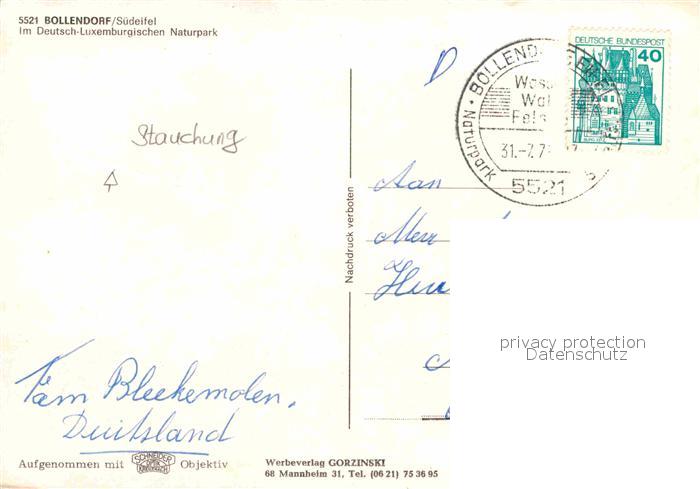 5521 BOLLENDORF/Südeifel
Im Deutsch-Luxemburgischen Naturpark
DEUTSCHE BUNDESPOST
40
BOLLEND
Wass
Wal
Fels
Naturpark
31.-7.7
5521
Stauchung
Nachdruck verboten
Aan
privacy protection
Datenschutz
Fam Bleekemolen,
Duitsland
Aufgenommen mit SCHNEIDER KREUZNACH Objektiv
Werbeverlag GORZINSKI
68 Mannheim 31, Tel. (06 21) 75 36 95